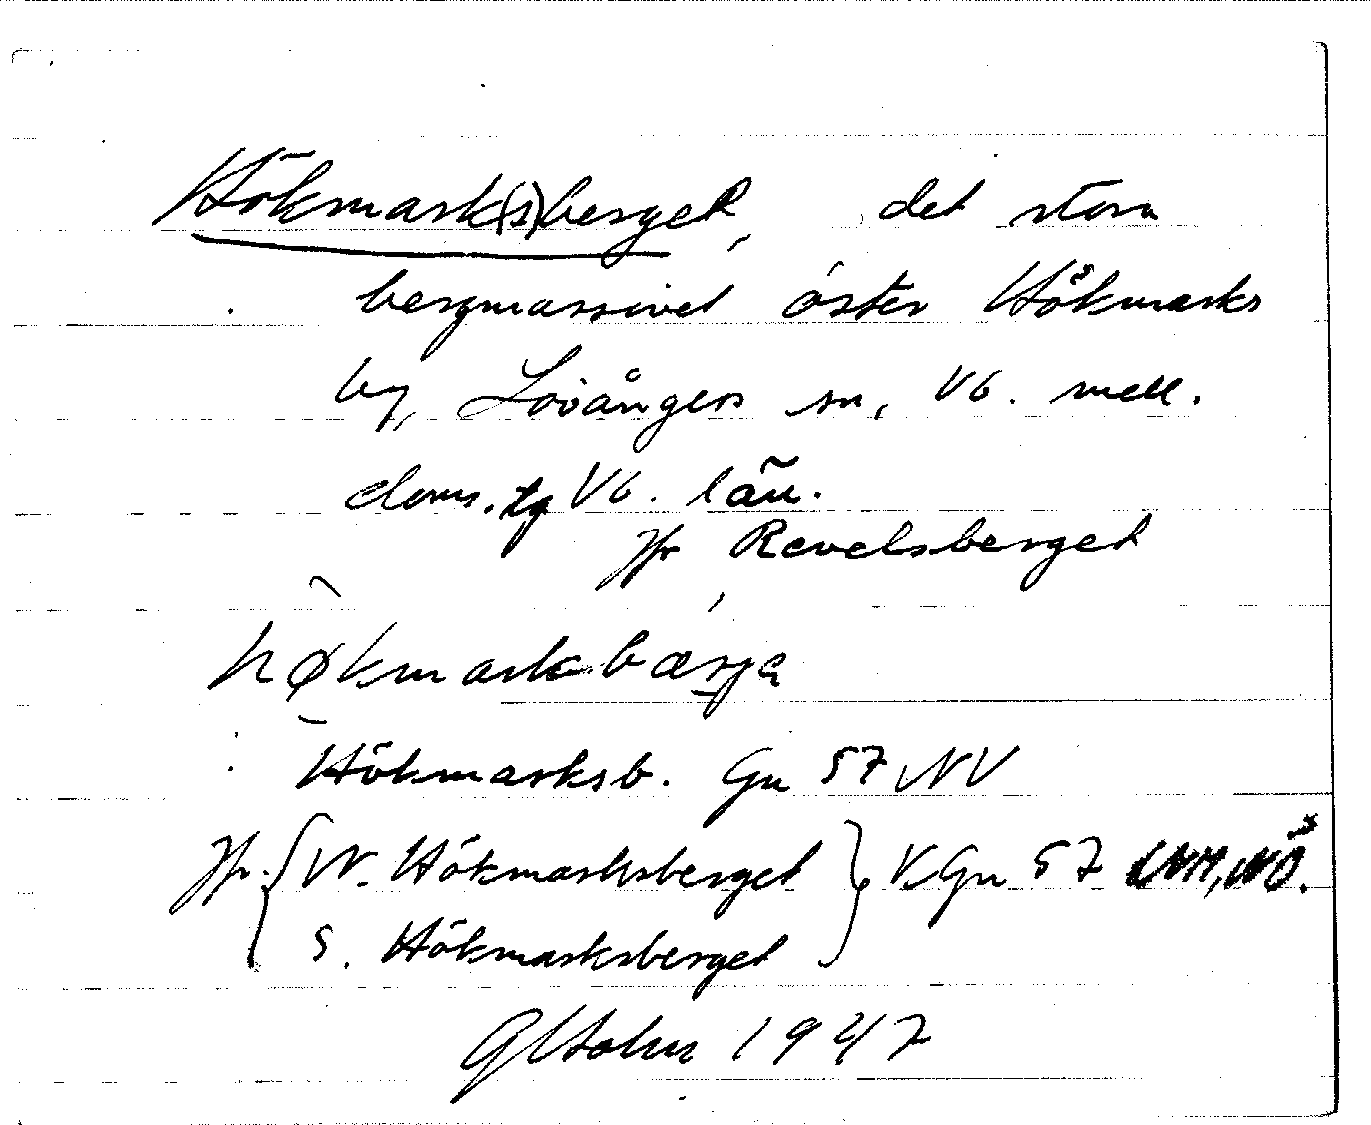 Hökmark(s)berget, det stora
bergmassivet öster Hökmarks
by, Lövångers sn, Vb. mell.
doms. tg Vb. län.
Jfr Revelsberget
høkmarkbærja
Hökmarksb. Gn 57 NV
Jfr. { N. Hökmarksberget } V. Gn 57
S. Hökmarksberget
GHolm 1947